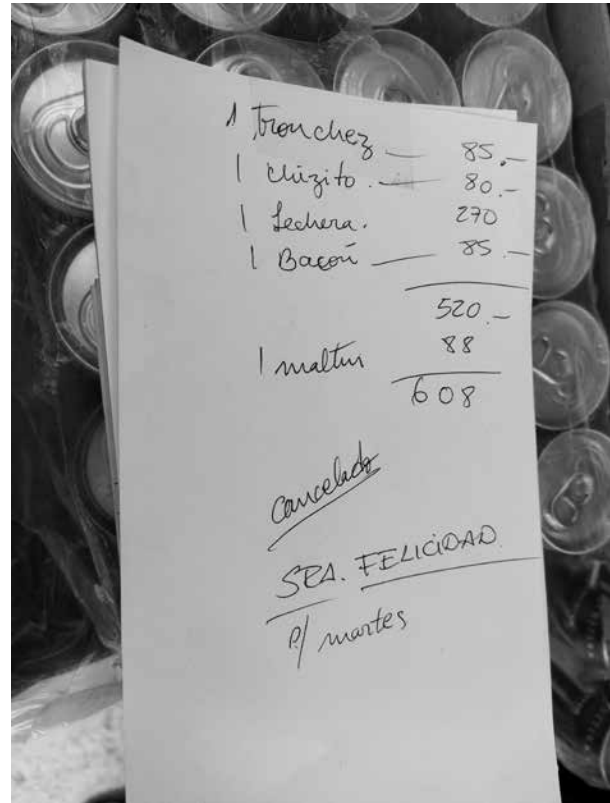 1 Tronchez — 85.—
1 chizito. — 80.—
1 Lechera. 270
1 Bacon — 85.—
520.—
1 maltin 88
608
cancelado
SRA. FELICIDAD
P/ martes